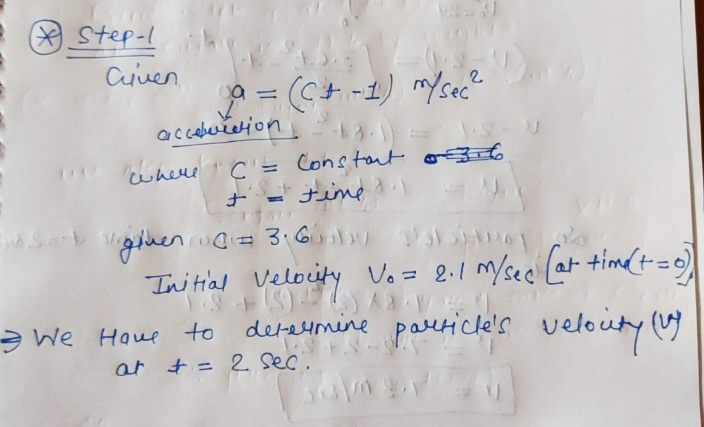 * Step-1
Given
a = (Ct - 1) m/sec²
acceleration
where C = constant
t = time
given C = 3.6
Initial Velocity V₀ = 2.1 m/sec [at time(t=0)]
⇒ We Have to determine particle's velocity (V)
at t = 2 sec.